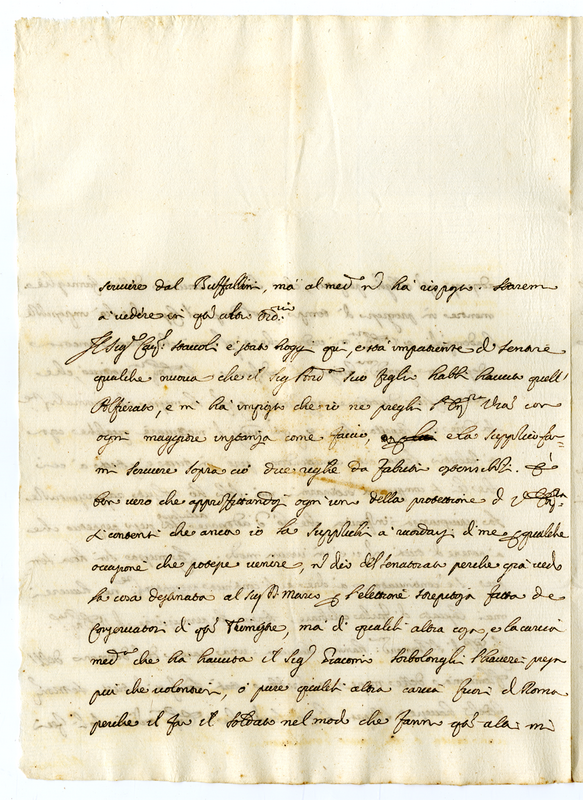 scrivere dal Buffalini, mà al med.o nò hà risposto. Starem
à vedere in q.ta altra
Il Sig.r Cav. Staccoli è stato hoggi qui, e stà impatiente di sentire
qualche nuova che il Sig.r suo figlio habbi havuta quell'
Alfierato, e mi hà imposto che io ne preghi V.ra con
ogni maggiore instanza come faccio, e la supplico far-
mi scrivere sopra ciò due righe da ostensibili. È
ben vero che approfittandosi ogn'un della protettione di V.
si contenti che anco io la supplichi à ricordarsi di me qualche
occasione che potesse venire, nò dico del Senatorato perche già vedo
la cosa destinata al Sig.r Marco l'elettione strepitosa fatta de
Conservatori di q.to Trimestre, mà di qualch' altra cosa, e la carica
med.ma che hà havuta il Sig.r Giacomo l'haverei presa
più che volontieri, ò pure qualch' altra carica fuori di Roma
perche il far il soldato nel modo che fanno q.ti ala mi